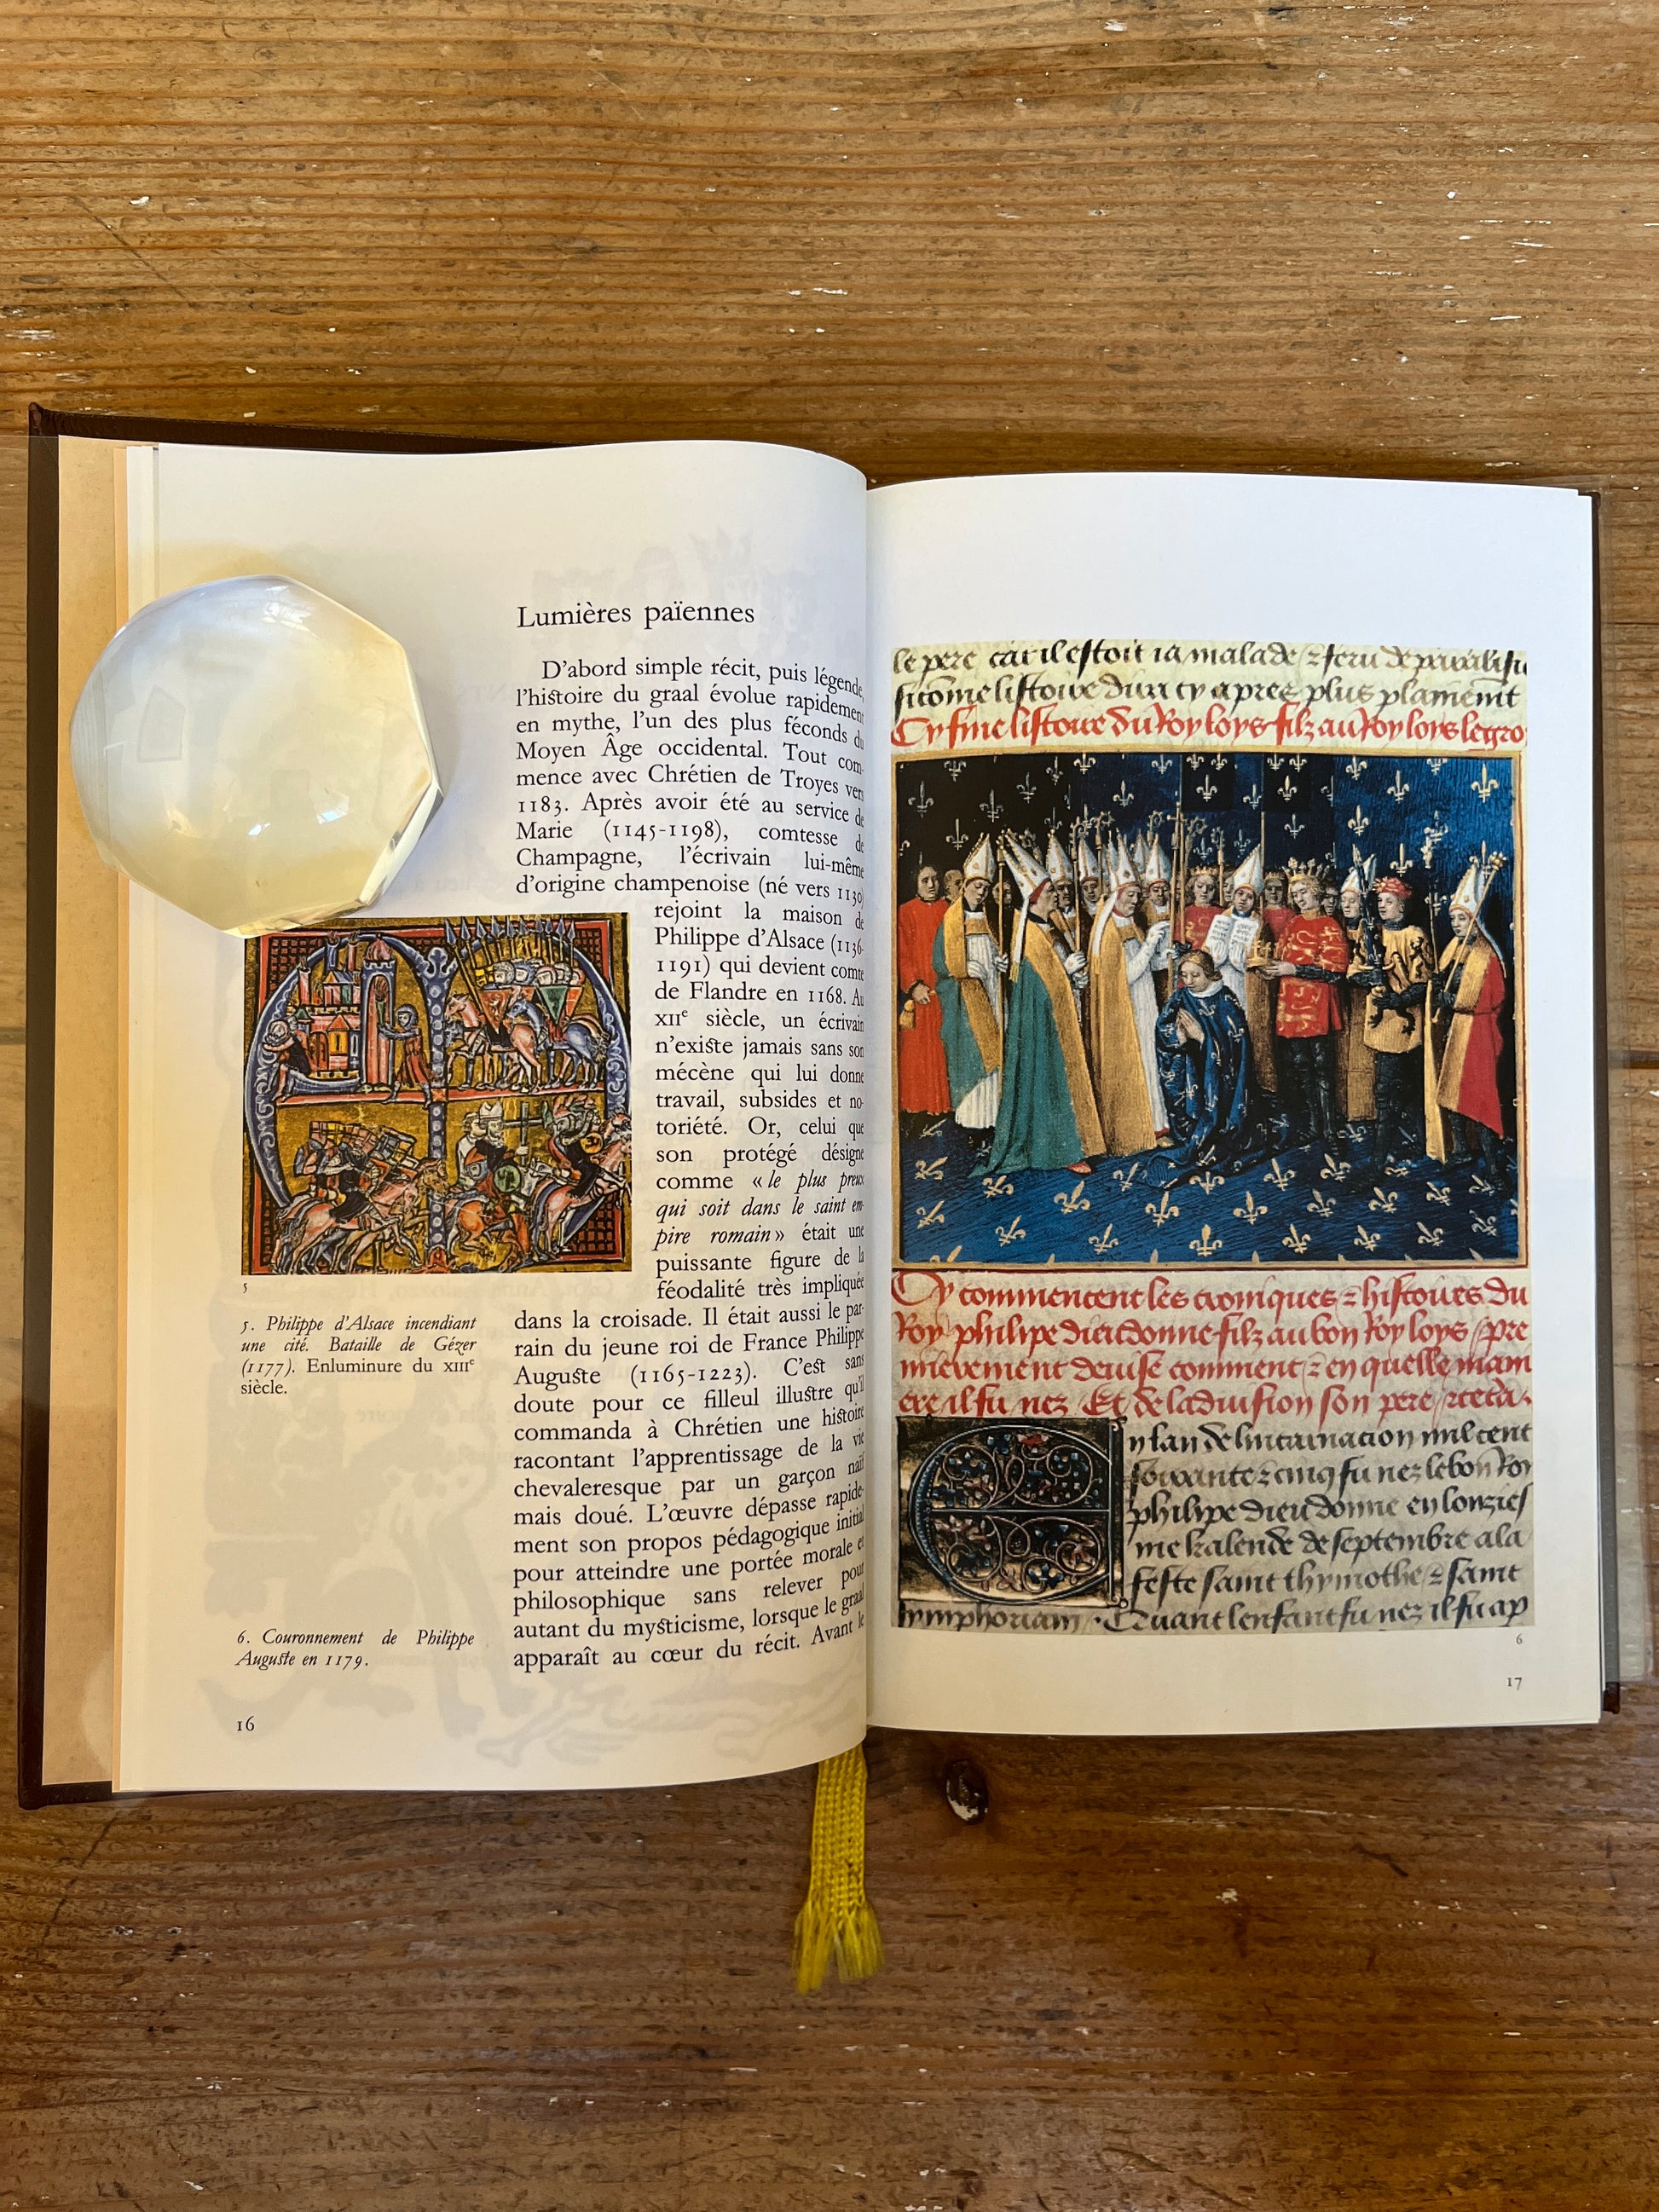 Lumières païennes
D'abord simple récit, puis légende,
l'histoire du graal évolue rapidement
en mythe, l'un des plus féconds du
Moyen Âge occidental. Tout com-
mence avec Chrétien de Troyes vers
1183. Après avoir été au service de
Marie (1145-1198), comtesse de
Champagne, l'écrivain lui-même
d'origine champenoise (né vers 1130)
rejoint la maison de
Philippe d'Alsace (1136-
1191) qui devient comte
de Flandre en 1168. Au
XIIe siècle, un écrivain
n'existe jamais sans son
mécène qui lui donne
travail, subsides et no-
toriété. Or, celui que
son protégé désigne
comme «le plus preux
qui soit dans le saint em-
pire romain» était une
puissante figure de la
féodalité très impliquée
dans la croisade. Il était aussi le par-
rain du jeune roi de France Philippe
Auguste (1165-1223). C'est sans
doute pour ce filleul illustre qu'il
commanda à Chrétien une histoire
racontant l'apprentissage de la vie
chevaleresque par un garçon naïf
mais doué. L'œuvre dépasse rapide-
ment son propos pédagogique initial
pour atteindre une portée morale et
philosophique sans relever pour
autant du mysticisme, lorsque le graal
apparaît au cœur du récit. Avant le
5
5. Philippe d'Alsace incendiant
une cité. Bataille de Gézer
(1177). Enluminure du XIIIe
siècle.
6. Couronnement de Philippe
Auguste en 1179.
16
le pere car il estoit ia malade
sicōme listoire dira cy apres plus plainemt
Cy fine listoire du Roy loys filz au Roy loys le gro
Cy commencent les croniques ⁊ histoires du
Roy philipe dieudonne filz au bon Roy loys / pre
mierement devise comment ⁊ en quelle mani
ere il fu nez Et de la division son pere
En lan de lincarnacion mil cent
soixante ⁊ cinq fu nez le bon Roy
philipe dieudonne en lonzies
me kalende de septembre a la
feste saint thymothe ⁊ saint
symphoriam . Quant lenfant fu nez il fu ap
6
17